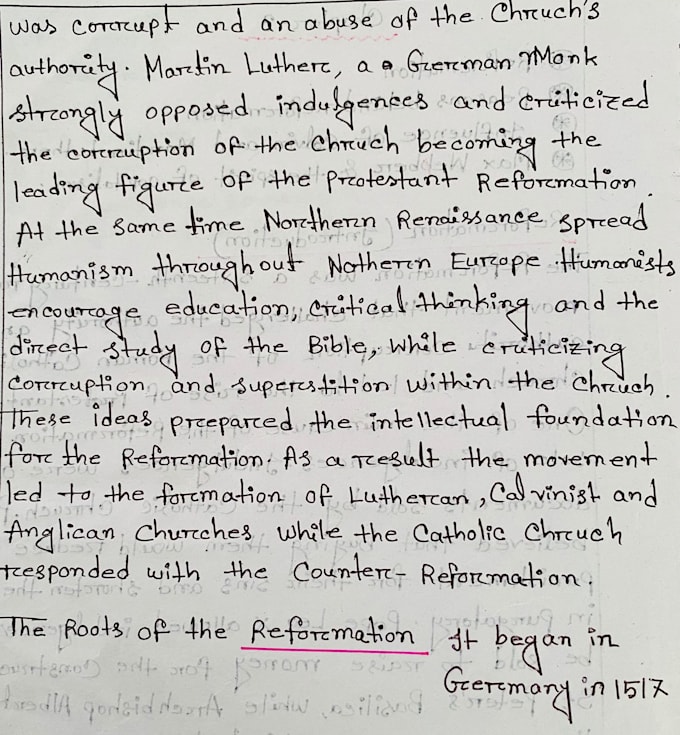 was corrupt and an abuse of the Chruch's
authority. Martin Luther, a German Monk
strongly opposed indulgences and criticized
the corruption of the Chruch becoming the
leading figure of the Protestant Reformation.
At the same time Northern Renaissance spread
Humanism throughout Nathern Europe. Humanists
encourage education, critical thinking and the
direct study of the Bible, while criticizing
Corruption and superstition within the Chruch.
These ideas prepared the intellectual foundation
for the Reformation. As a result the movement
led to the formation of Lutheran, Calvinist and
Anglican Churches while the Catholic Chruch
responded with the Counter-Reformation.
The Roots of the Reformation It began in
Germany in 1517